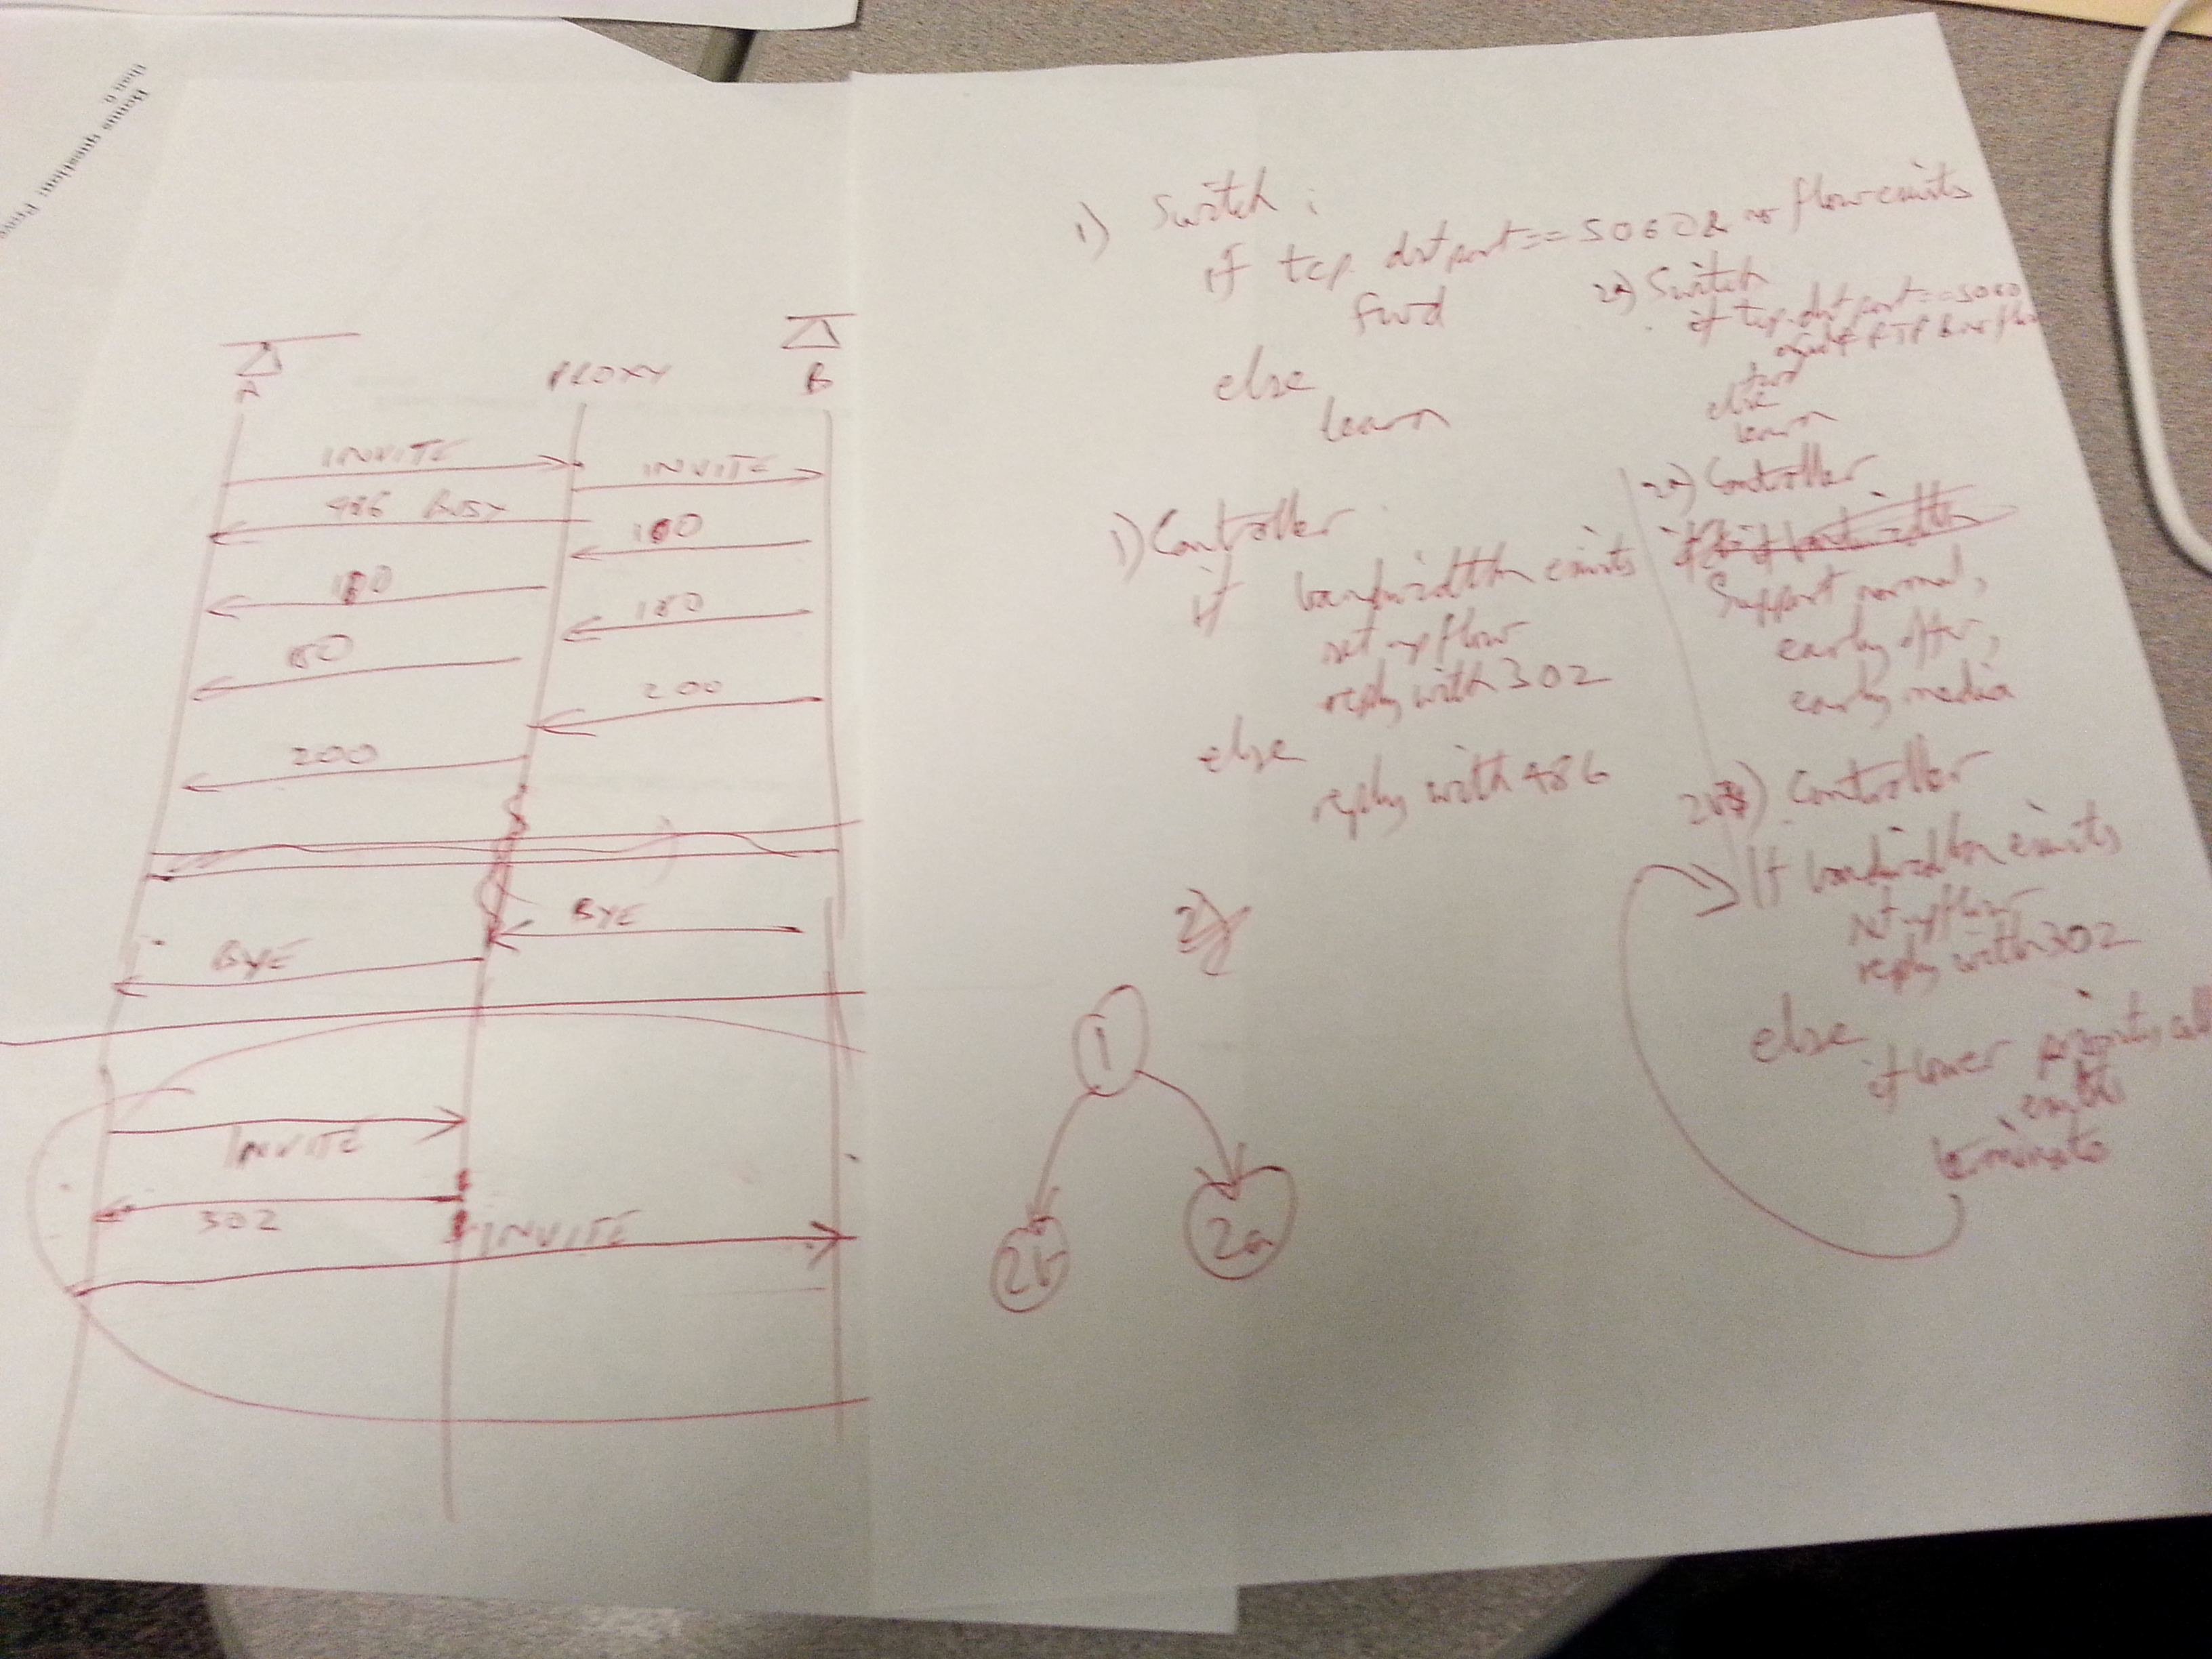 Bonus question: Prove
than 0.
A
PROXY
B
INVITE
INVITE
486 BUSY
100
180
180
200
200
BYE
BYE
INVITE
302
INVITE
1) Switch :
if tcp. dst port == 5060 & no flow exists
fwd
else
learn
1) Controller
if bandwidth exists
set-up flow
reply with 302
else
reply with 486
2)
1
2b
2a
2a) Switch
if tcp. dst port == 5060
RTP & no flow
fwd
else
learn
2a) Controller
Support normal,
early offer,
early media
Controller
If bandwidth exists
set-up flow
reply with 302
else
if lower priority call
exists
terminate